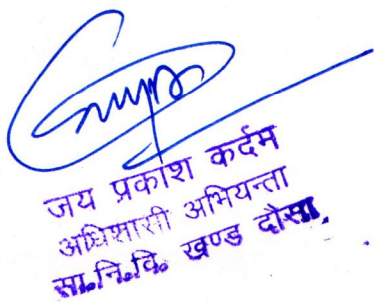 जय प्रकाश कर्दम
अधिशासी अभियन्ता
सा.नि.वि. खण्ड दौसा.